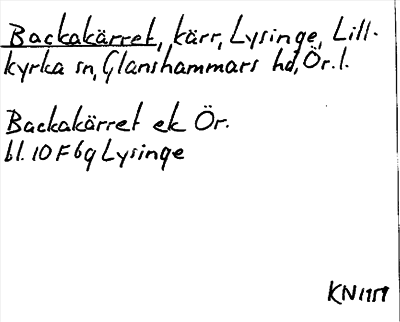 Backakärret, kärr, Lysinge, Lill-
kyrka sn, Glanshammars hd, Ör. l.
Backakärret ek Ör.
bl. 10 F 6g Lysinge
KN